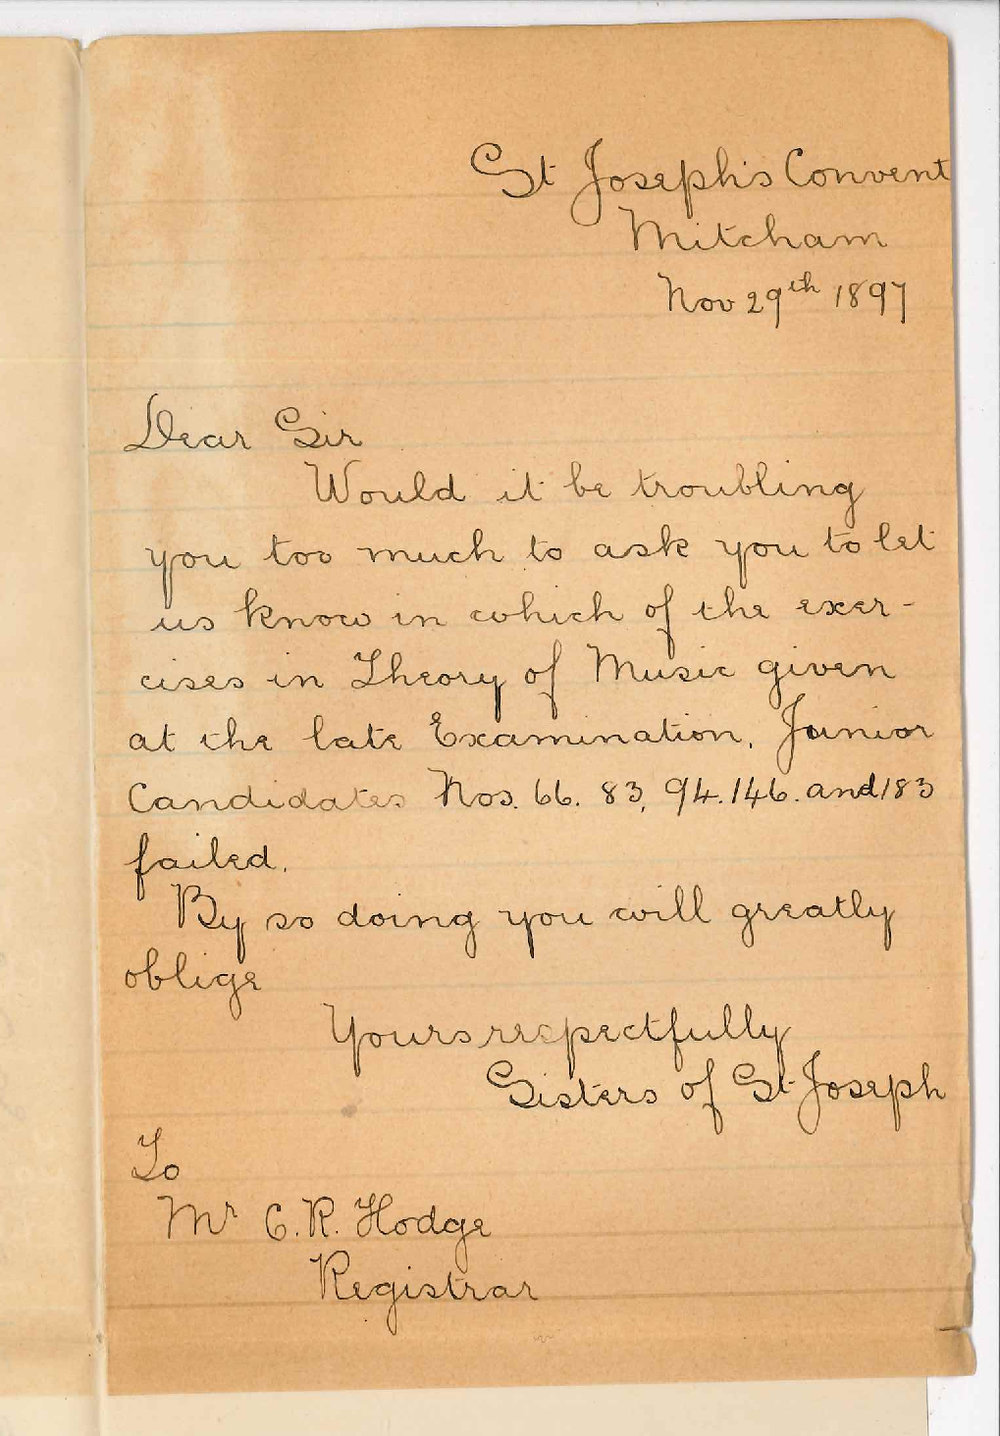 St Joseph's Convent
Mitcham
Nov 29th 1897
Dear Sir
Would it be troubling
you too much to ask you to let
us know in which of the exer-
cises in Theory of Music given
at the late Examination, Junior
Candidates Nos. 66. 83, 94. 146. and 183
failed.
By so doing you will greatly
oblige
Yours respectfully
Sisters of St Joseph
To
Mr C. R. Hodge
Registrar